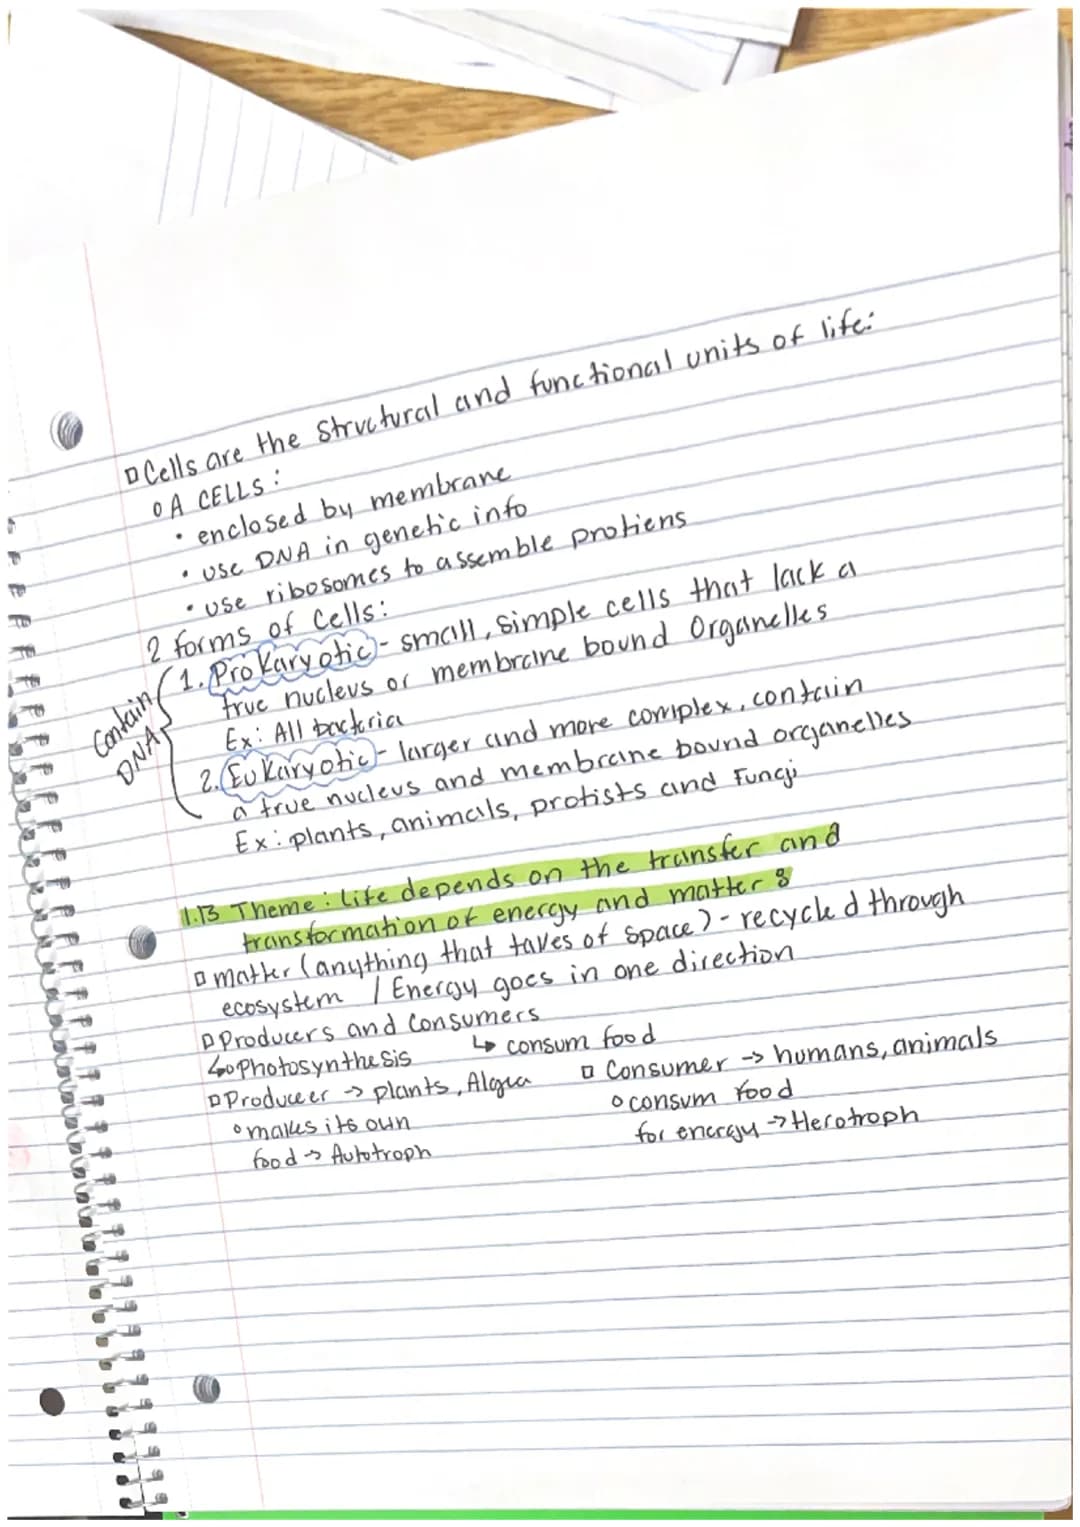 ▫Cells are the structural and functional units of life:
∘A CELLS:
• enclosed by membrane
• use DNA in genetic info
• use ribosomes to assemble protiens
2 forms of cells:
Contain DNA
1. Prokaryotic - small, simple cells that lack a
true nucleus or membrane bound Organelles
Ex: All bactria
2. Eukaryotic - larger and more complex, contain
a true nucleus and membrane bound organelles
Ex: plants, animals, protists and Fungi
1.13 Theme: Life depends on the transfer and
transformation of energy and matter:
▫matter (anything that taves of space) - recycled through
ecosystem / Energy goes in one direction
▫Producers and Consumers
↳∘Photosynthesis ↳ consum food
▫Produceer → plants, Algea ▫ Consumer → humans, animals
∘makes its own ∘consum food
food → Autotroph for energy → Herotroph